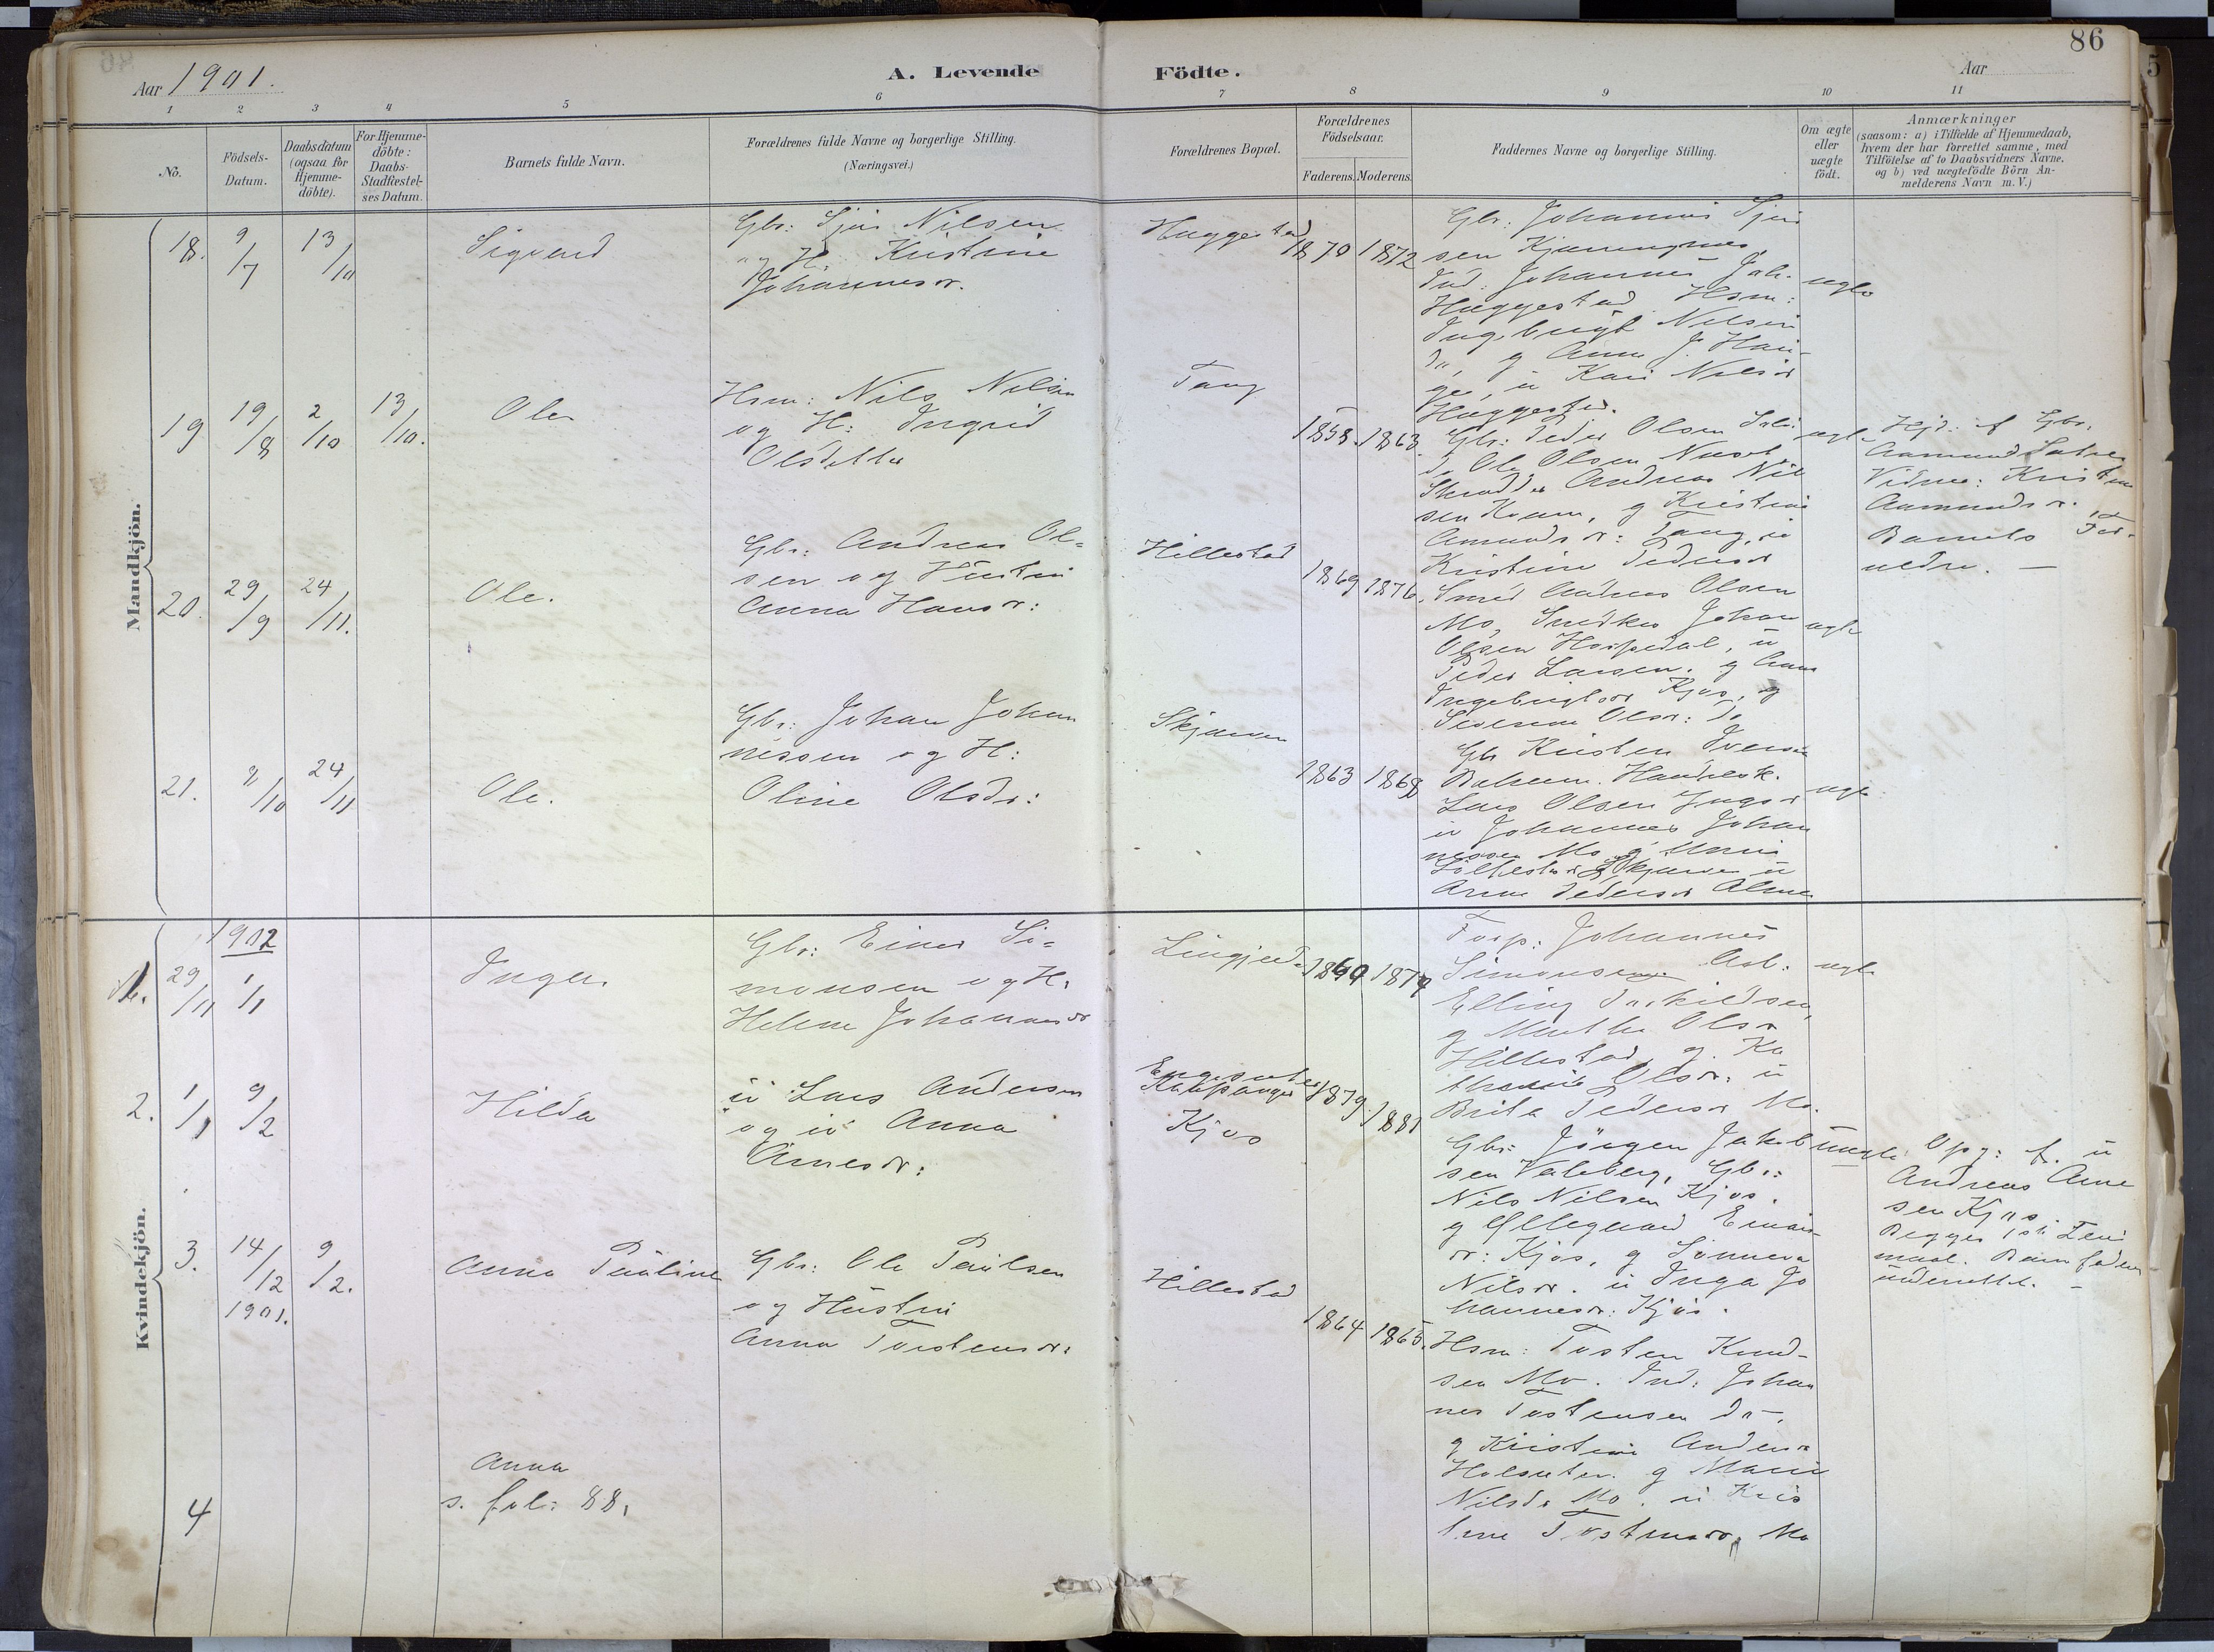 86
Aar 1901.
A. Levende Födte.
Aar
1 2 3 4 5 6 7 8 9 10 11
No.
Födsels-Datum.
Daabsdatum (ogsaa for Hjemme-döbte).
For Hjemme-döbte: Daabs-Stadfæstel-ses Datum.
Barnets fulde Navn.
Forældrenes fulde Navne og borgerlige Stilling.
(Næringsvei.)
Forældrenes Bopæl.
Forældrenes Födselsaar.
Faderens. Moderens.
Faddernes Navne og borgerlige Stilling.
Om ægte eller uægte födt.
Anmærkninger
(saasom: a) i Tilfælde af Hjemmedaab, hvem der har forrettet samme, med Tilföielse af to Daabsvidners Navne. og b) ved uægtefödte Börn Anmelderens Navn m. V.)
Mandkjön.
18.
9/7
13/10
Sigvard
Gbr: Sjur Nilsen
og H. Kristine
Johannesdr.
Haggestad
1870 1872
Gbr: Johannes Sjur
sen
Ind: Johannes Joh.
Haggestad Hsm:
Ingebrigt Nilsen
do, g Anna J. Hau-
ge, u Kari Nilsdr
Haggestad.
egte
19
19/8
2/10
13/10.
Ole
Hsm: Nils Nilsen
og H: Ingrid
Olsdatter
Tang
1858. 1863.
Gbr: Peder Olsen
Ole Olsen
Skrædder Andreas Nil
sen Kvam, g Kristine
Amundsdr: Tang, u
Kristine Pedersdr
egte
Hjd: af Gbr.
Aamund
Vidner: Kristine
Aamundsdr.
Barnets For-
ældre. —
20.
29/9
24/11.
Ole.
Gbr: Andreas Ol=
sen og Hustru
Anna Hansdr:
Hillestad
1869 1876.
Smed Andreas Olsen
Mo, Snedker Johan
Olsen Hospedal, u
Peder Larsen. g Anna
Ingebrigtsdr Kjos, g
Olsdr: do
egte
21.
/10
24/11
Ole.
Gbr: Johan Johan
nessen og H:
Oline Olsdr:
Skjerven
1863 1868
Gbr Kristen Iversen
Handelsk.
Lars Olsen
u Johannes Johan
nessen Mo g
Skjerven u
Anna Pedersdr
egte
Kvindekjön.
1902
1.
29/11
1/1
Inga.
Gbr: Einar Si=
monsen og H.
Helene Johannesdr
Lingjerde
1869 1874
Forp: Johannes
Simonsen
Elling
g Marthe Olsdr
Hillestad, g. Ka
thrine Olsdr: u
Brita Pedersdr Mo.
egte
2.
1/1
9/2
Hilda
u Lars Andersen
og u Anna
Arnesdr:
Engesæter
Kaupanger
Kjos
1879. 1881
Gbr: Jörgen Jakob
sen Valeberg, Gbr:
Nils Nilsen Kjos.
g Einars-
dr: Kjos, g Sönneva
Nilsdr. u Inga Jo
hannesdr: Kjos.
uægte
Opg: f. u
Andreas Arne
sen Kjos
Begges 1ste Leier
maal. Barnefaderen
underrettet. —
3.
14/12 1901.
9/2.
Anna Pauline
Gbr: Ole Paulsen
og Hustru
Anna Torstensdr:
Hillestad
1864 1865.
Hsm: Tosten Knud-
sen Mo. Ind: Johan
nes Tostensen do,
g Kristine Andersdr
Holsæter. g Marie
Nilsdr Mo. u Kris
tine Tostensdr, Mo
4
Anna
s. fol: 88,